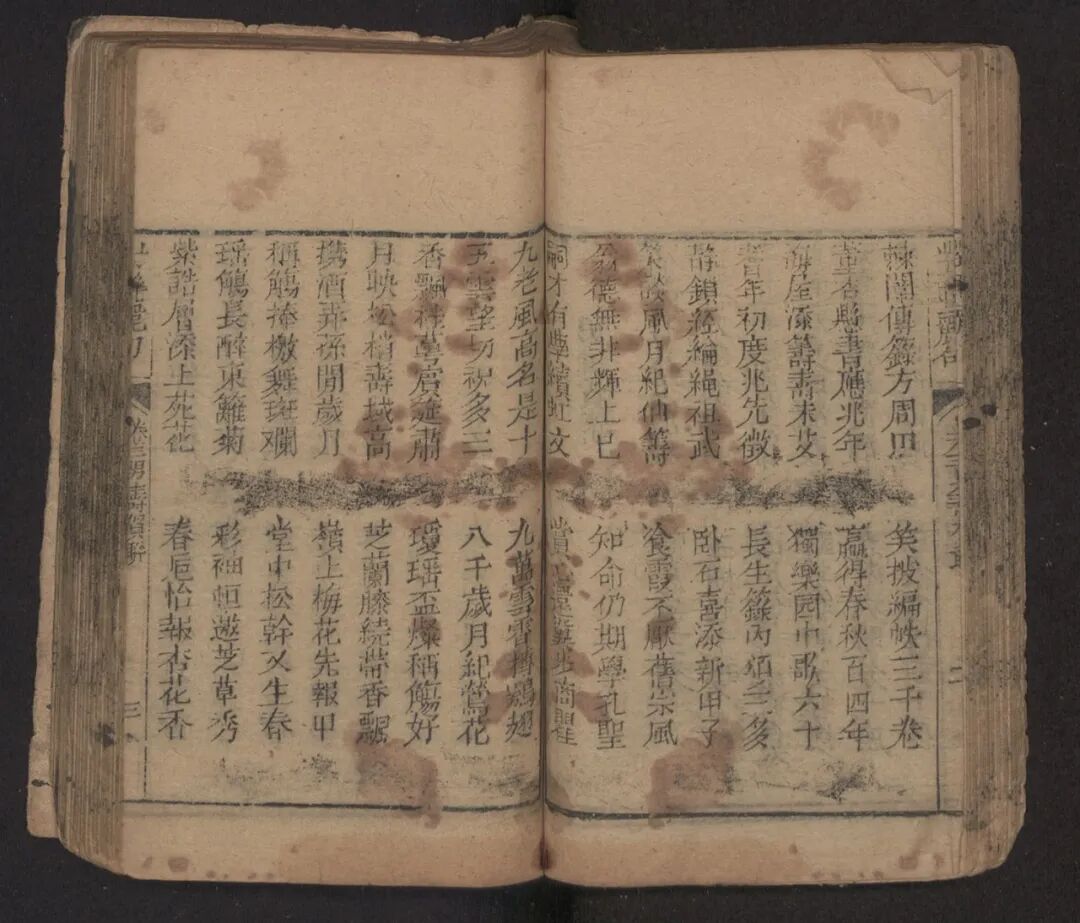 傳籙方周甲
董杏 書應兆年
海屋添籌壽未艾
耆年初度兆先徵
鎖經綸繩祖武
談風月紀仙籌
德無非輝上巳
笑披編帙三千卷
贏得春秋百四年
獨樂园中歌六十
長生籙內頌三多
卧石喜添新甲子
飡霞不厭舊宗風
知命仍期學孔聖
商瞿
九老風高名是十
五雲望切祝多三
香飄桂萼 筵肅
月映松梢壽域高
携酒弄孫閒歲月
稱觴捧檄舞斑斕
瑶觴長醉東籬菊
紫誥層添上苑花
九萬雲霄摶 翅
八千歲月紀鶯花
瓊瑶盃燦稱觴好
芝蘭膝繞帶香飄
嶺上梅花先報甲
堂中松幹又生春
彩袖恒邀芝草秀
春巵怡報杏花香
卷三男壽賀聯
三